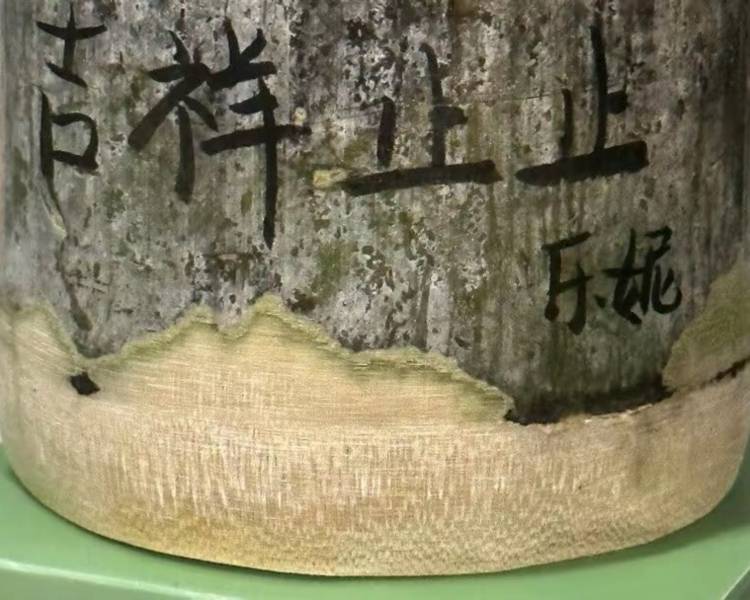 吉祥止止
乐妮